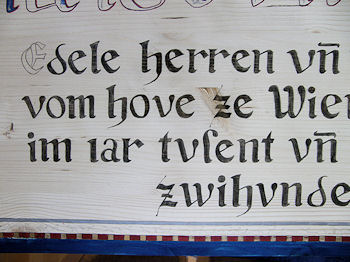 Edele herren vn̄
vom hove ze Wien
im ıar tvſent vn̄
zwihvnde